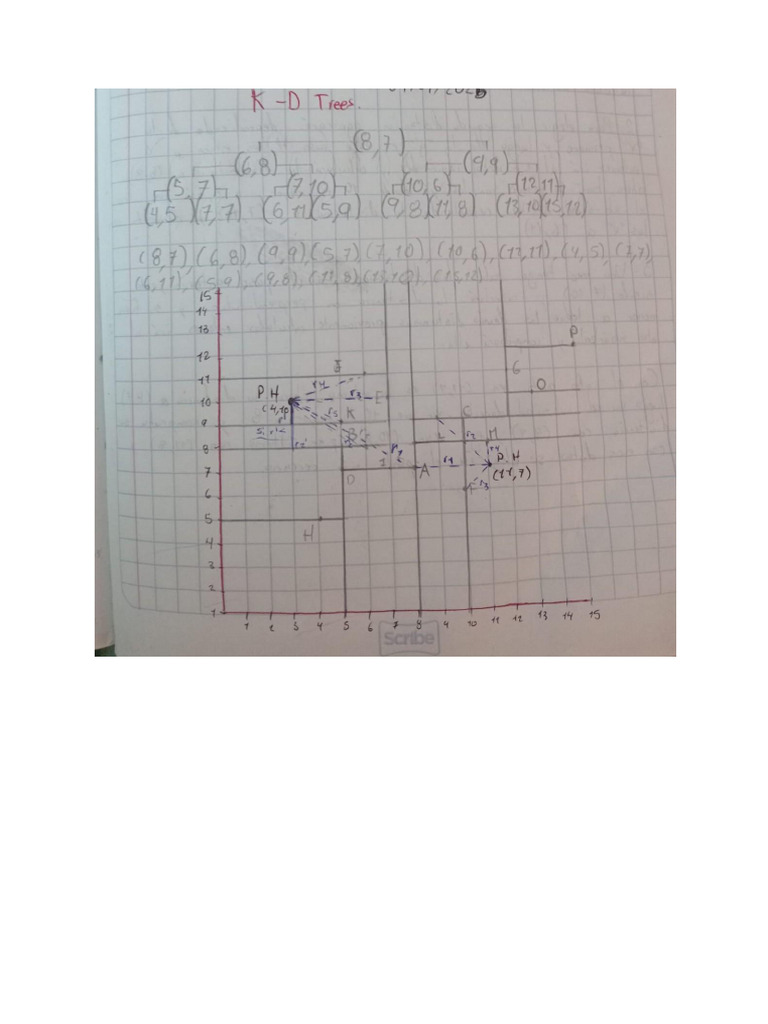 K-D Trees.
(8,7)
(6,8) (9,9)
(5,7) (7,10) (10,6) (12,11)
(4,5)(7,7) (6,11)(5,9) (9,8)(11,8) (13,10)(15,12)
(8,7), (6,8), (9,9), (5,7), (7,10), (10,6), (12,11), (4,5), (7,7),
(6,11), (5,9), (9,8), (11,8), (13,10), (15,12)
15
14
13 P
12
11 r4 G
P.H O
10 r3 E
(4,10)
9 r5 K C
8 r2 M
7 J A r1 r4 P.H
6 D r3 (11,7)
5
4 H
3
2
1
1 2 3 4 5 6 7 8 9 10 11 12 13 14 15
Scribe